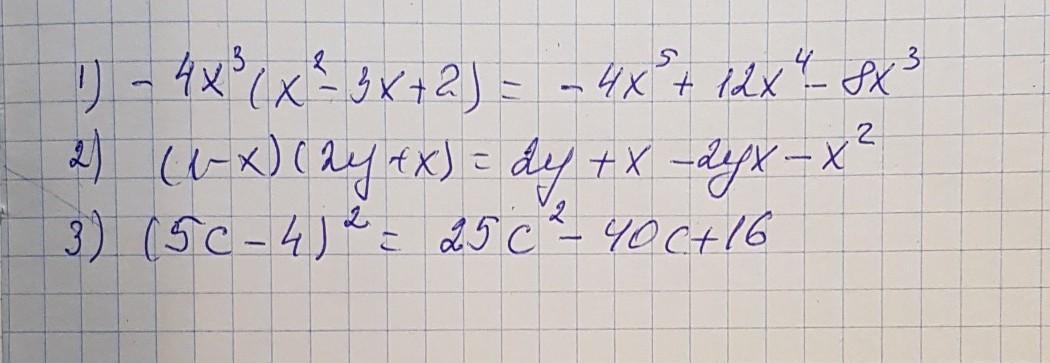 1) - 4x³(x² - 3x + 2) = - 4x⁵ + 12x⁴ - 8x³
2) (1-x)(2y+x) = 2y + x - 2yx - x²
3) (5c - 4)² = 25c² - 40c + 16